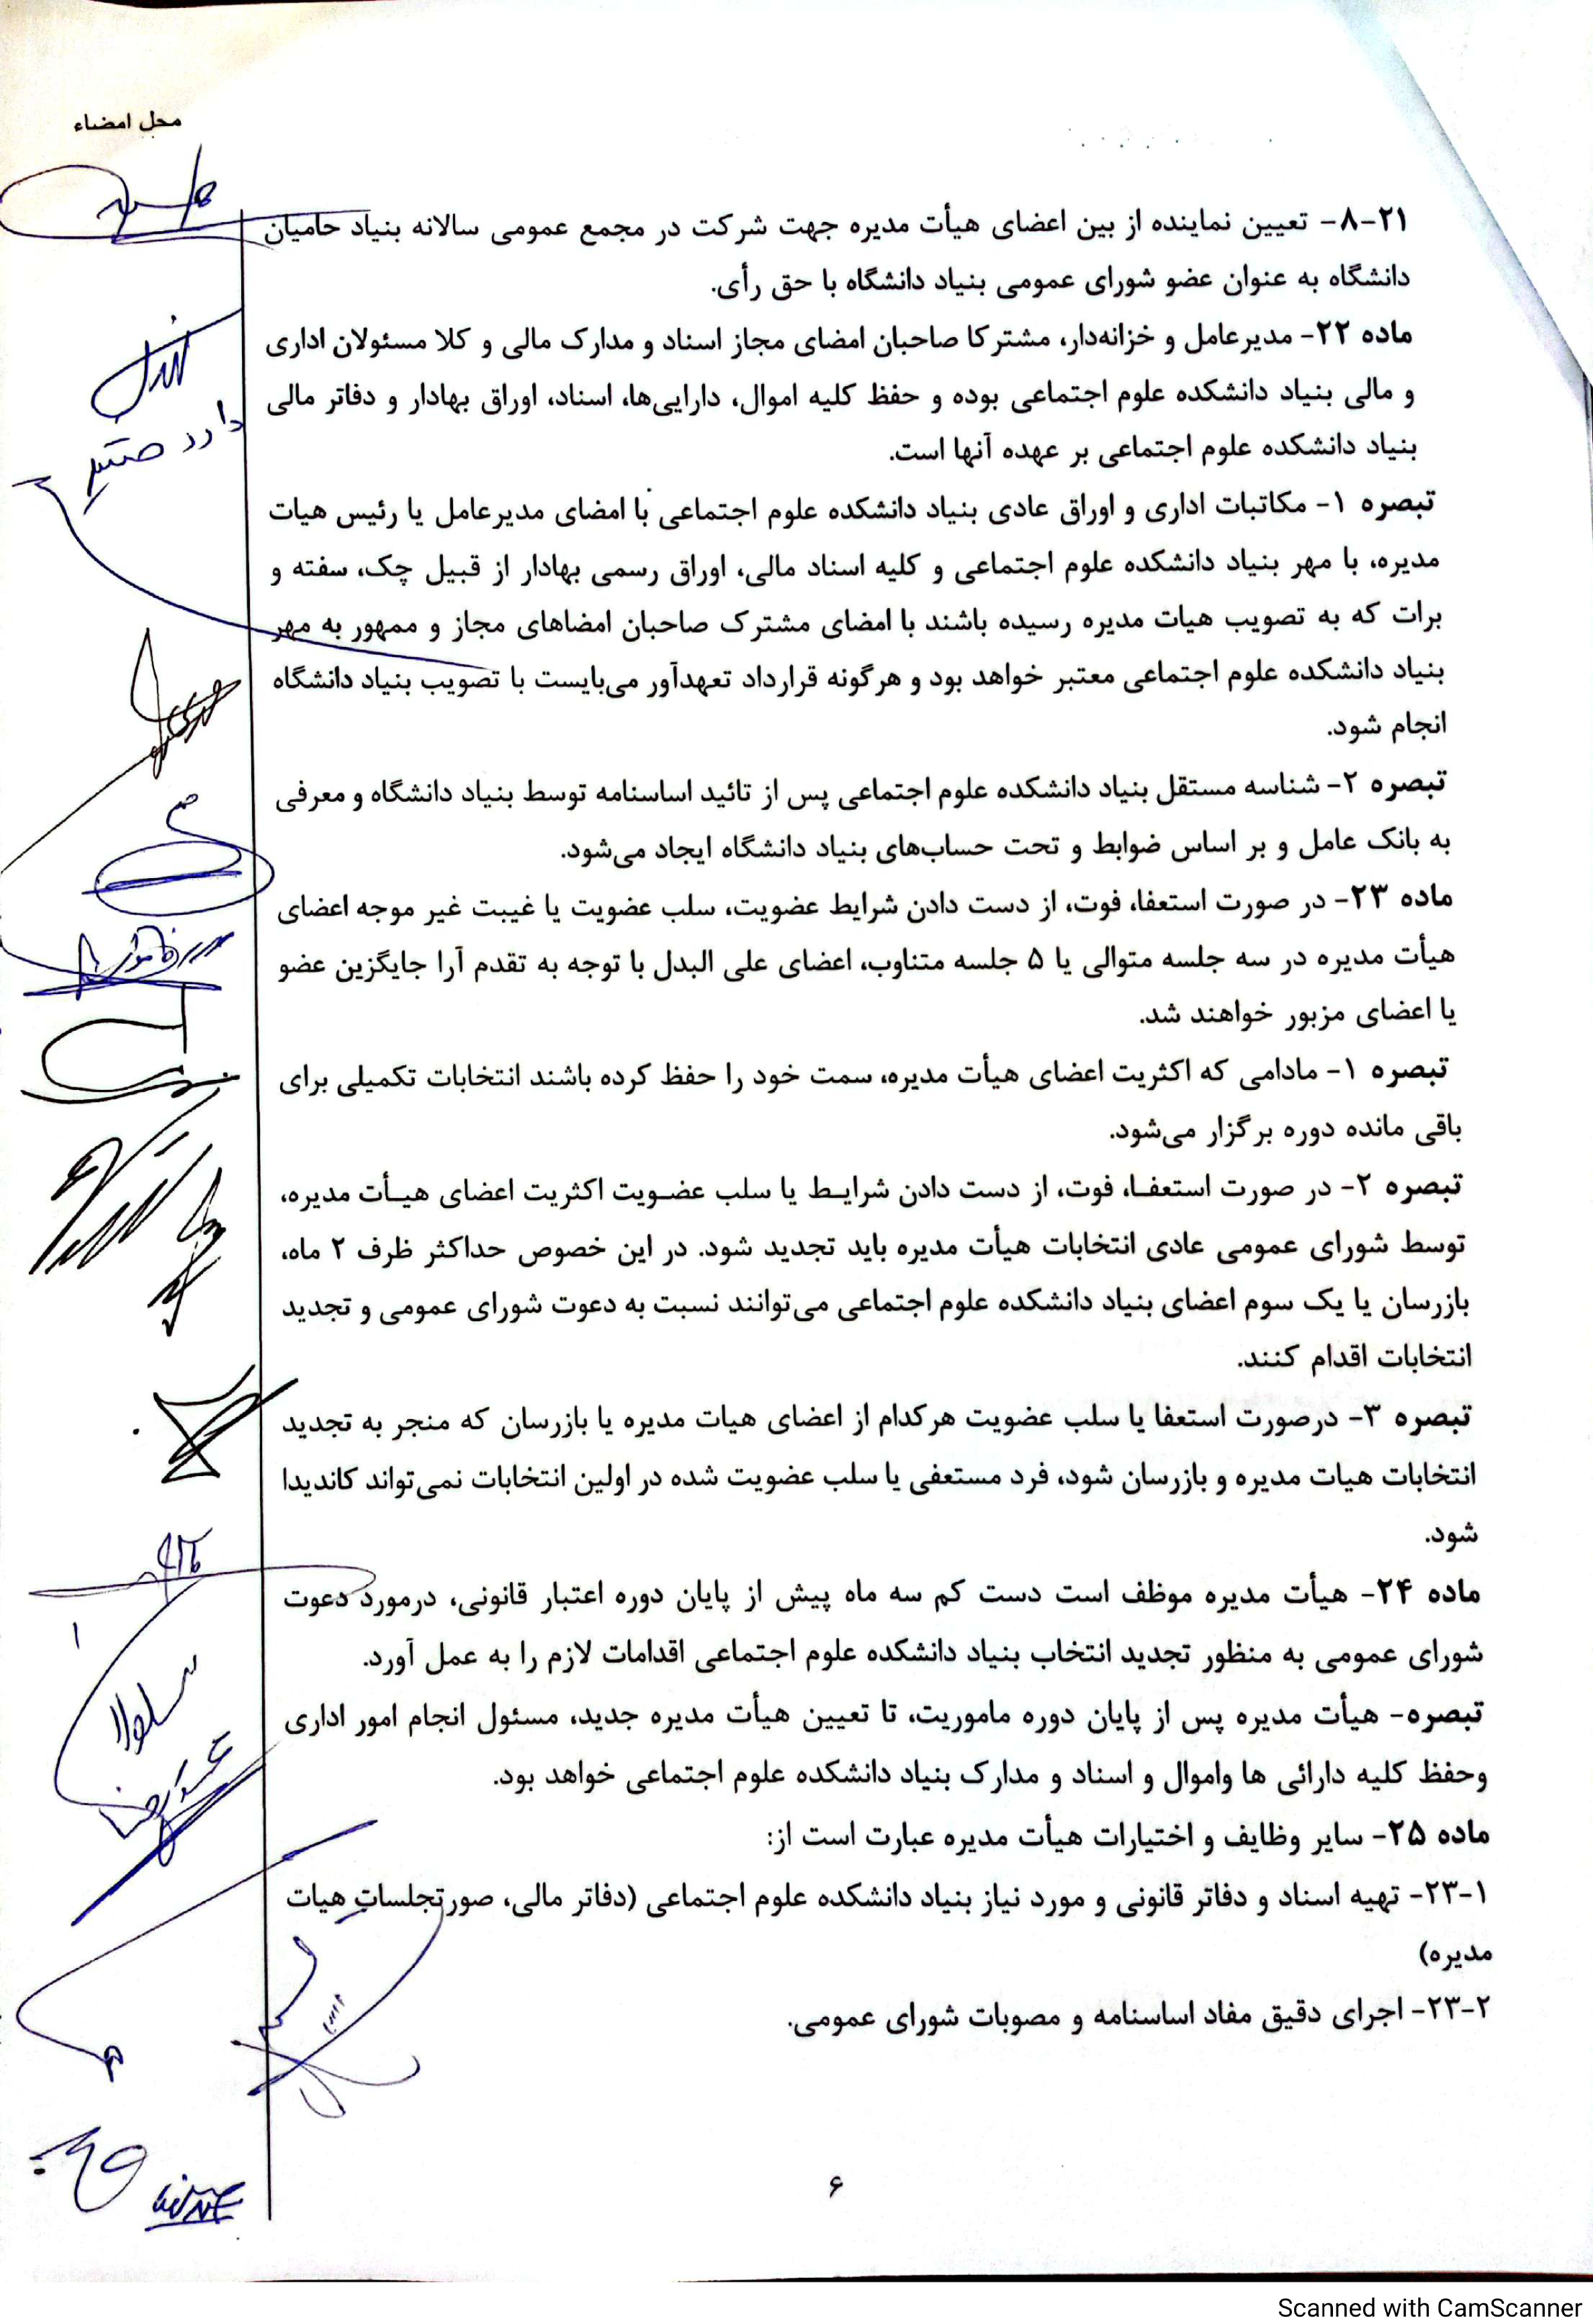 محل امضاء
۸-۲۱- تعیین نماینده از بین اعضای هیأت مدیره جهت شرکت در مجمع عمومی سالانه بنیاد حامیان
دانشگاه به عنوان عضو شورای عمومی بنیاد دانشگاه با حق رأی.
ماده ۲۲- مدیرعامل و خزانه‌دار، مشترکا صاحبان امضای مجاز اسناد و مدارک مالی و کلا مسئولان اداری
و مالی بنیاد دانشکده علوم اجتماعی بوده و حفظ کلیه اموال، دارایی‌ها، اسناد، اوراق بهادار و دفاتر مالی
بنیاد دانشکده علوم اجتماعی بر عهده آنها است.
تبصره ۱- مکاتبات اداری و اوراق عادی بنیاد دانشکده علوم اجتماعی با امضای مدیرعامل یا رئیس هیات
مدیره، با مهر بنیاد دانشکده علوم اجتماعی و کلیه اسناد مالی، اوراق رسمی بهادار از قبیل چک، سفته و
برات که به تصویب هیات مدیره رسیده باشند با امضای مشترک صاحبان امضاهای مجاز و ممهور به مهر
بنیاد دانشکده علوم اجتماعی معتبر خواهد بود و هرگونه قرارداد تعهدآور می‌بایست با تصویب بنیاد دانشگاه
انجام شود.
تبصره ۲- شناسه مستقل بنیاد دانشکده علوم اجتماعی پس از تائید اساسنامه توسط بنیاد دانشگاه و معرفی
به بانک عامل و بر اساس ضوابط و تحت حساب‌های بنیاد دانشگاه ایجاد می‌شود.
ماده ۲۳- در صورت استعفا، فوت، از دست دادن شرایط عضویت، سلب عضویت یا غیبت غیر موجه اعضای
هیأت مدیره در سه جلسه متوالی یا ۵ جلسه متناوب، اعضای علی البدل با توجه به تقدم آرا جایگزین عضو
یا اعضای مزبور خواهند شد.
تبصره ۱- مادامی که اکثریت اعضای هیأت مدیره، سمت خود را حفظ کرده باشند انتخابات تکمیلی برای
باقی مانده دوره برگزار می‌شود.
تبصره ۲- در صورت استعفا، فوت، از دست دادن شرایط یا سلب عضویت اکثریت اعضای هیأت مدیره،
توسط شورای عمومی عادی انتخابات هیأت مدیره باید تجدید شود. در این خصوص حداکثر ظرف ۲ ماه،
بازرسان یا یک سوم اعضای بنیاد دانشکده علوم اجتماعی می‌توانند نسبت به دعوت شورای عمومی و تجدید
انتخابات اقدام کنند.
تبصره ۳- درصورت استعفا یا سلب عضویت هرکدام از اعضای هیات مدیره یا بازرسان که منجر به تجدید
انتخابات هیات مدیره و بازرسان شود، فرد مستعفی یا سلب عضویت شده در اولین انتخابات نمی‌تواند کاندیدا
شود.
ماده ۲۴- هیأت مدیره موظف است دست کم سه ماه پیش از پایان دوره اعتبار قانونی، درمورد دعوت
شورای عمومی به منظور تجدید انتخاب بنیاد دانشکده علوم اجتماعی اقدامات لازم را به عمل آورد.
تبصره- هیأت مدیره پس از پایان دوره ماموریت، تا تعیین هیأت مدیره جدید، مسئول انجام امور اداری
وحفظ کلیه دارائی ها واموال و اسناد و مدارک بنیاد دانشکده علوم اجتماعی خواهد بود.
ماده ۲۵- سایر وظایف و اختیارات هیأت مدیره عبارت است از:
۲۳-۱- تهیه اسناد و دفاتر قانونی و مورد نیاز بنیاد دانشکده علوم اجتماعی (دفاتر مالی، صورتجلسات هیات
مدیره)
۲۳-۲- اجرای دقیق مفاد اساسنامه و مصوبات شورای عمومی.
۶
Scanned with CamScanner